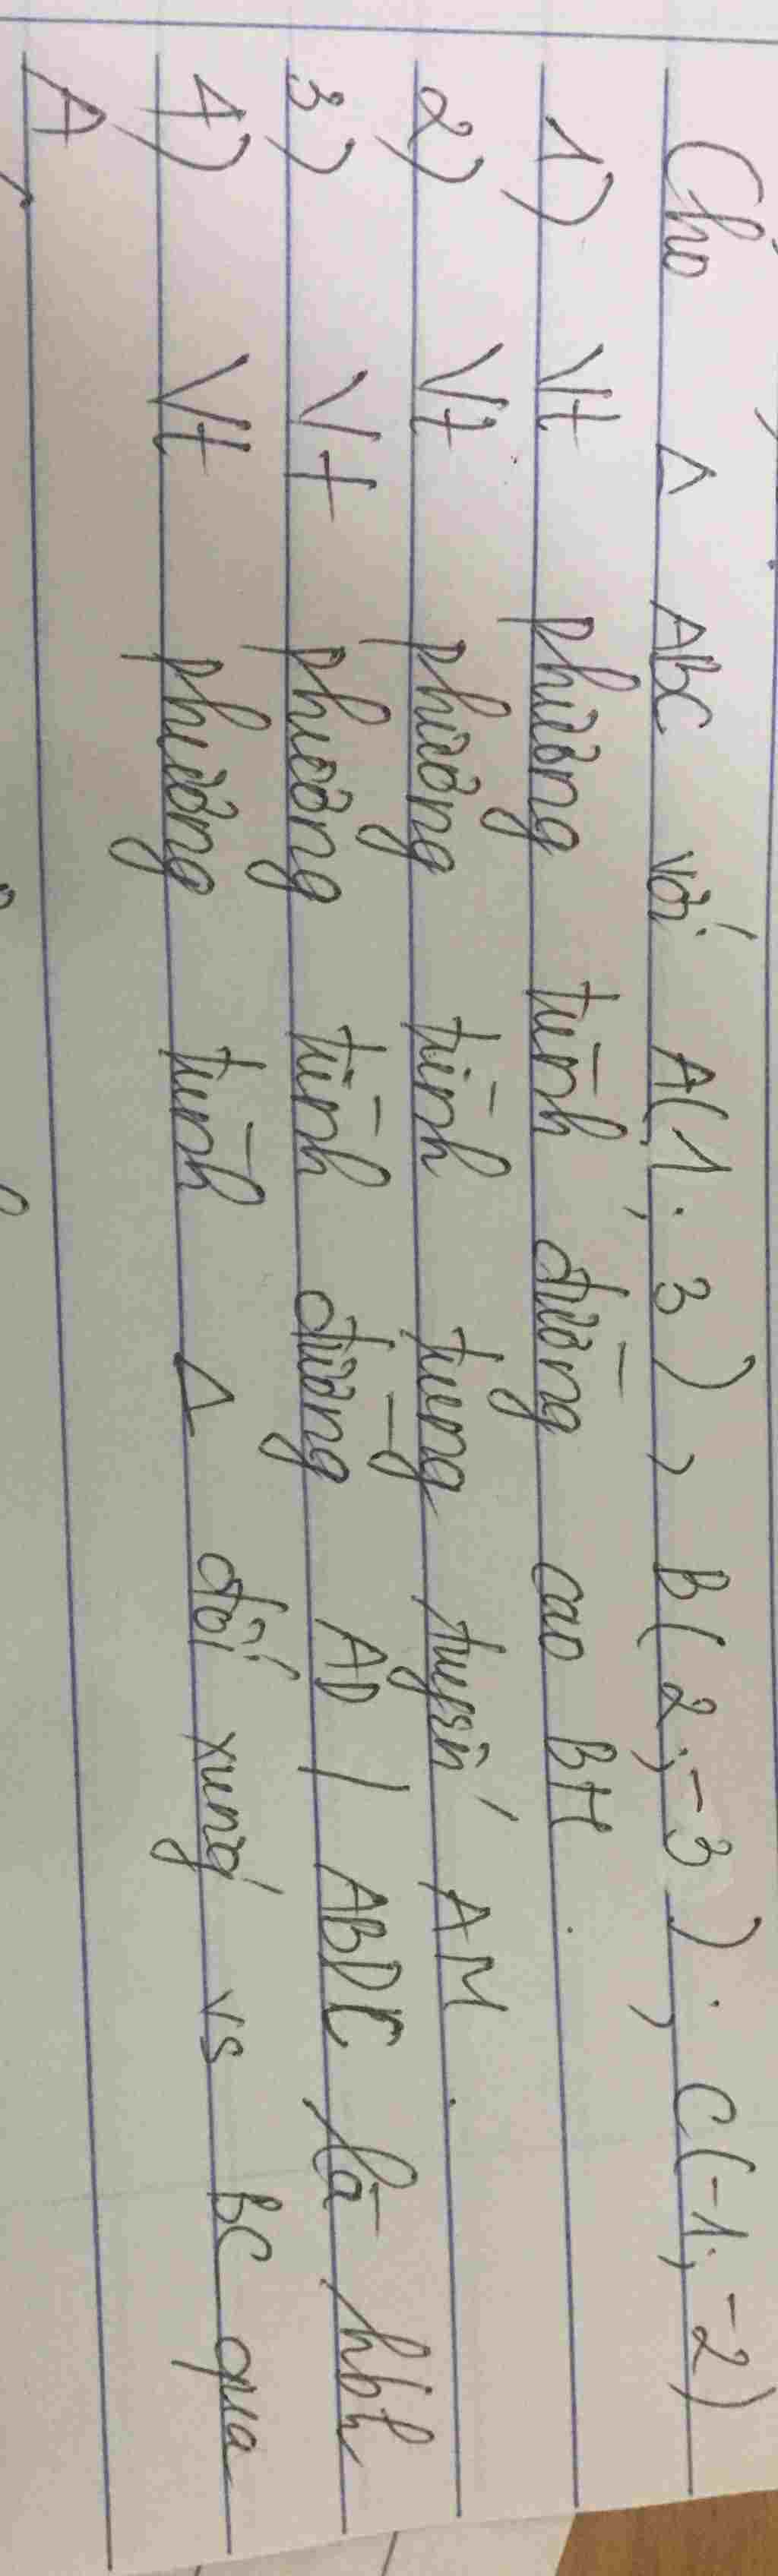 Cho Δ ABC với A(1; 3), B(2; -3); C(-1; -2)
1) Vt phương trình đường cao BH.
2) Vt phương trình trung tuyến AM.
3) Vt phương trình đường AD / ABDC là hbh
4) Vt phương trình Δ đối xứng vs BC qua
A